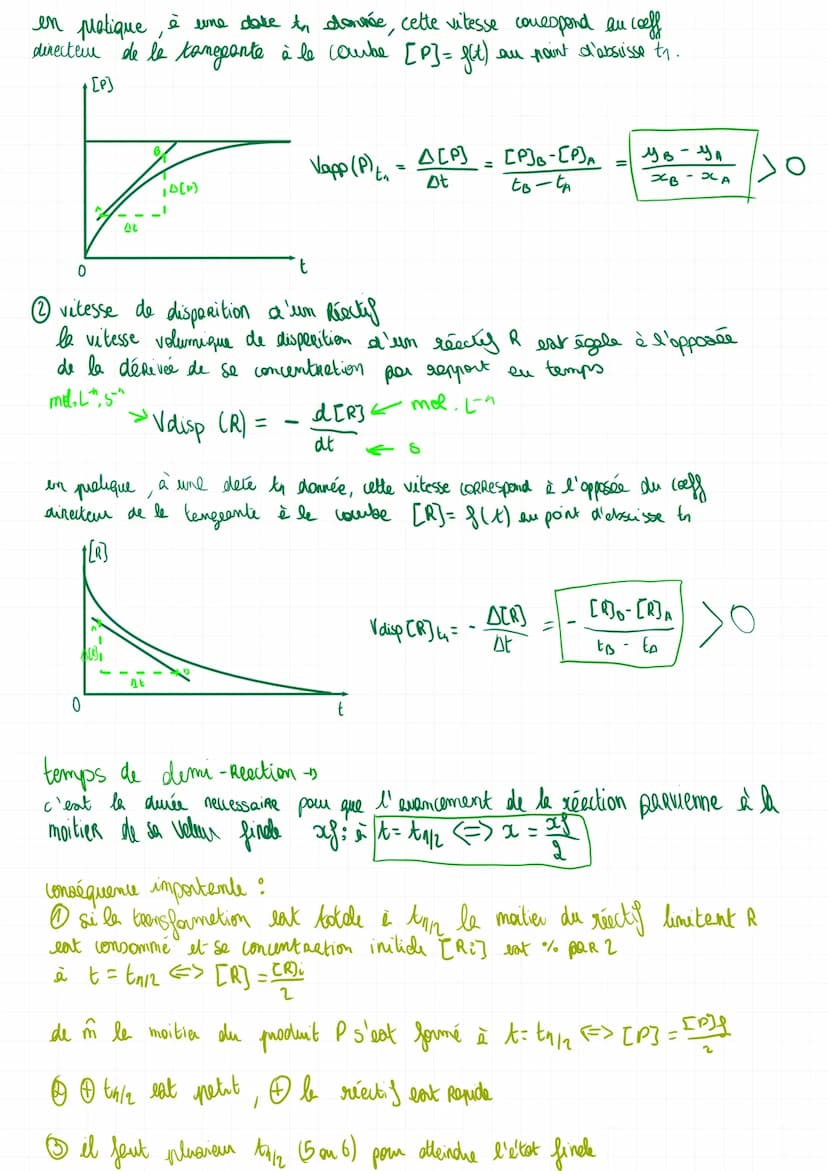 en pratique, à une date t₁ donnée, cette vitesse correspond au coeff
directeur de la tangeante à la courbe [P]= f(t) au point d'absisse t₁.
[P]
B
Δ[P]
A
Δt
0
t
Vapp(P)t₁ = Δ[P]/Δt = ([P]B-[P]A)/(tB-tA) = (yB - yA)/(xB - xA) > 0
② vitesse de disparition d'un Réactif
la vitesse volumique de disparition d'un réactif R est égale à l'opposée
de la dérivée de sa concentration par rapport au temps
mol.L⁻¹.s⁻¹
→ Vdisp (R) = - d[R]/dt ← mol.L⁻¹
← s
en pratique, à une date t₁ donnée, cette vitesse correspond à l'opposée du coeff
directeur de la tangeante à la courbe [R]= f(t) au point d'abscisse t₁
[R]
A
Δ[R]
B
Δt
0
t
Vdisp[R]t₁ = - Δ[R]/Δt = - ([R]B-[R]A)/(tB - tA) > 0
temps de demi-Reaction →
c'est la durée necessaire pour que l'avancement de la réaction parvienne à la
moitier de sa valeur finale xf : à t= t1/2 <=> x = xf/2
conséquence importante :
① si la transformation est totale à t1/2 la moitier du réactif limitant R
est consommé et sa concentration initiale [Ri] est % par 2
à t = t1/2 <=> [R] = [R]i/2
de m̂ la moitier du produit P s'est formé à t= t1/2 <=> [P] = [P]f/2
② ⊕ t1/2 est petit, ⊕ le réactif est rapide
③ il faut plusieur t1/2 (5 ou 6) pour atteindre l'état finale